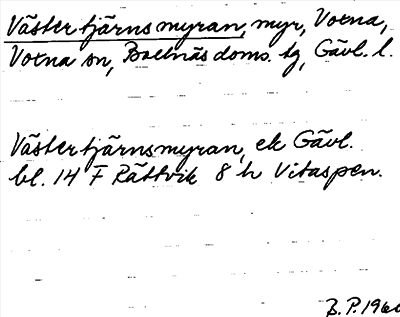 Västertjärnsmyran, myr, Votna,
Votna sn, Bollnäs doms. tg, Gävl. l.
Västertjärnsmyran, ek Gävl.
bl. 14 F Rättvik 8 h Vitaspen.
B.P. 196